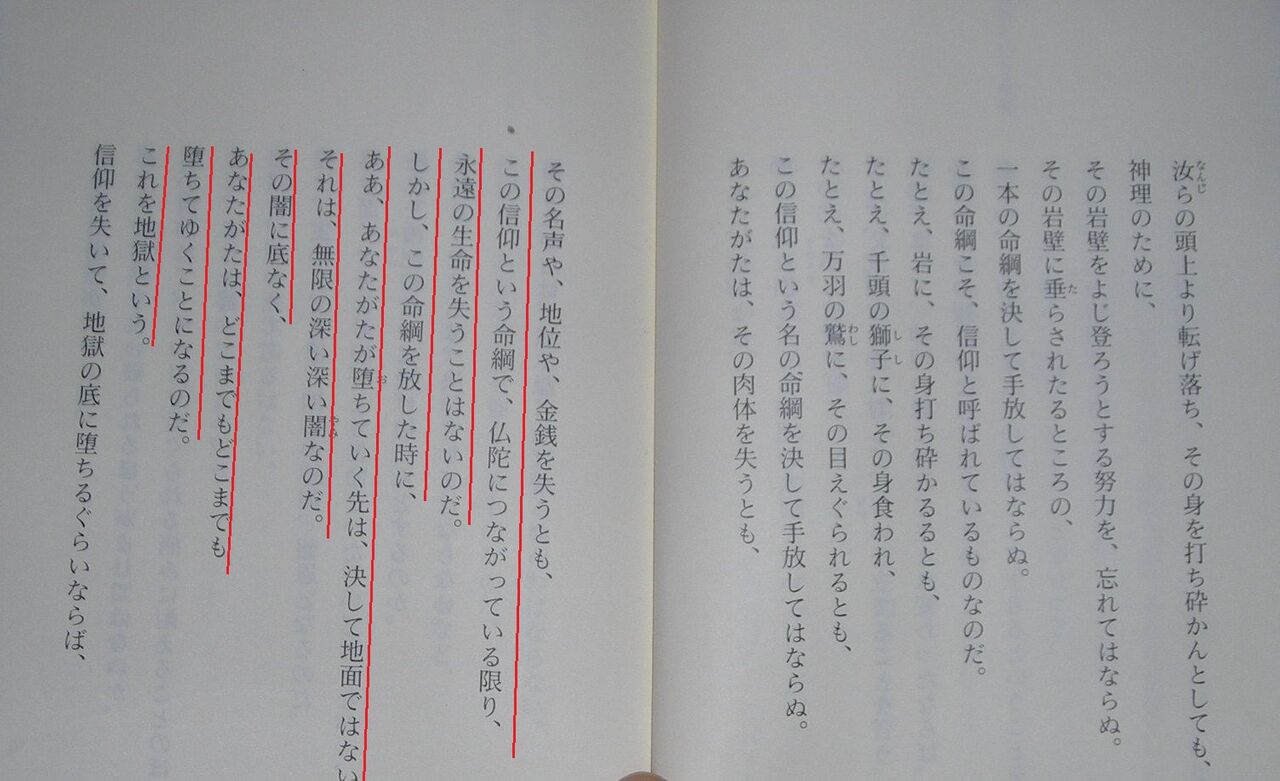 汝らの頭上より転げ落ち、その身を打ち砕かんとしても、
神理のために、
その岩壁をよじ登ろうとする努力を、忘れてはならぬ。
その岩壁に垂らされたるところの、
一本の命綱を決して手放してはならぬ。
この命綱こそ、信仰と呼ばれているものなのだ。
たとえ、岩に、その身打ち砕かるるとも、
たとえ、千頭の獅子に、その身食われ、
たとえ、万羽の鷲に、その目えぐられるとも、
この信仰という名の命綱を決して手放してはならぬ。
あなたがたは、その肉体を失うとも、
その名声や、地位や、金銭を失うとも、
この信仰という命綱で、仏陀につながっている限り、
永遠の生命を失うことはないのだ。
しかし、この命綱を放した時に、
ああ、あなたがたが堕ちていく先は、決して地面ではない
それは、無限の深い深い闇なのだ。
その闇に底なく、
あなたがたは、どこまでもどこまでも
堕ちてゆくことになるのだ。
これを地獄という。
信仰を失いて、地獄の底に堕ちるぐらいならば、